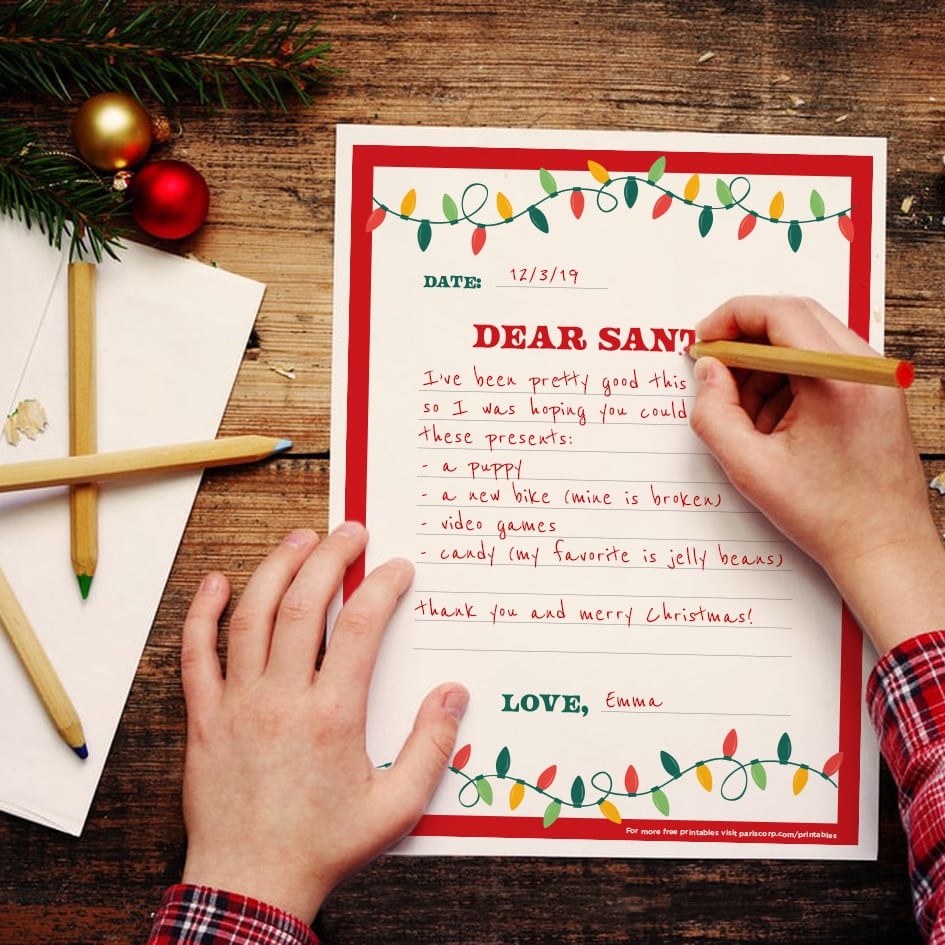 DATE: 12/3/19
DEAR SANT
I've been pretty good this
so I was hoping you could
these presents:
- a puppy
- a new bike (mine is broken)
- video games
- candy (my favorite is jelly beans)
thank you and merry Christmas!
LOVE, Emma
For more free printables visit pariscorp.com/printables